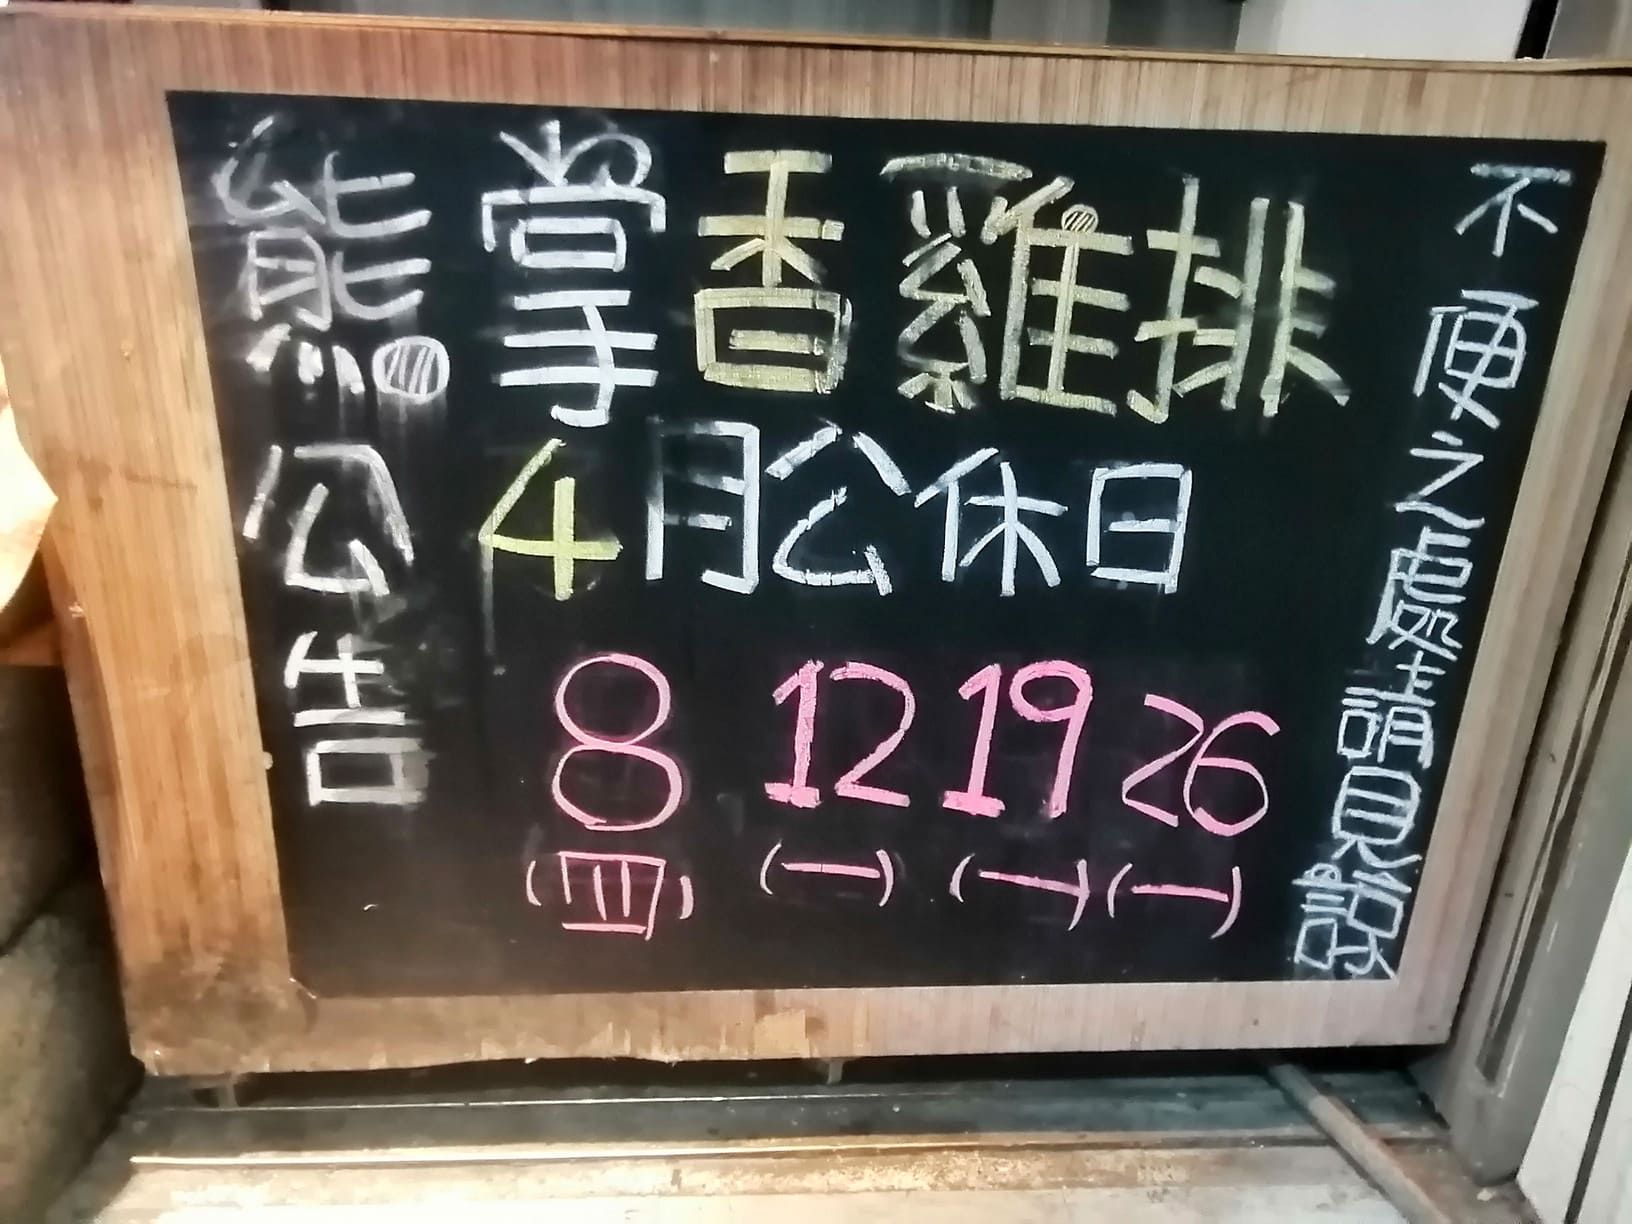 熊掌香雞排
公告
4月公休日
8 12 19 26
(四) (一) (一) (一)
不便之處請見諒